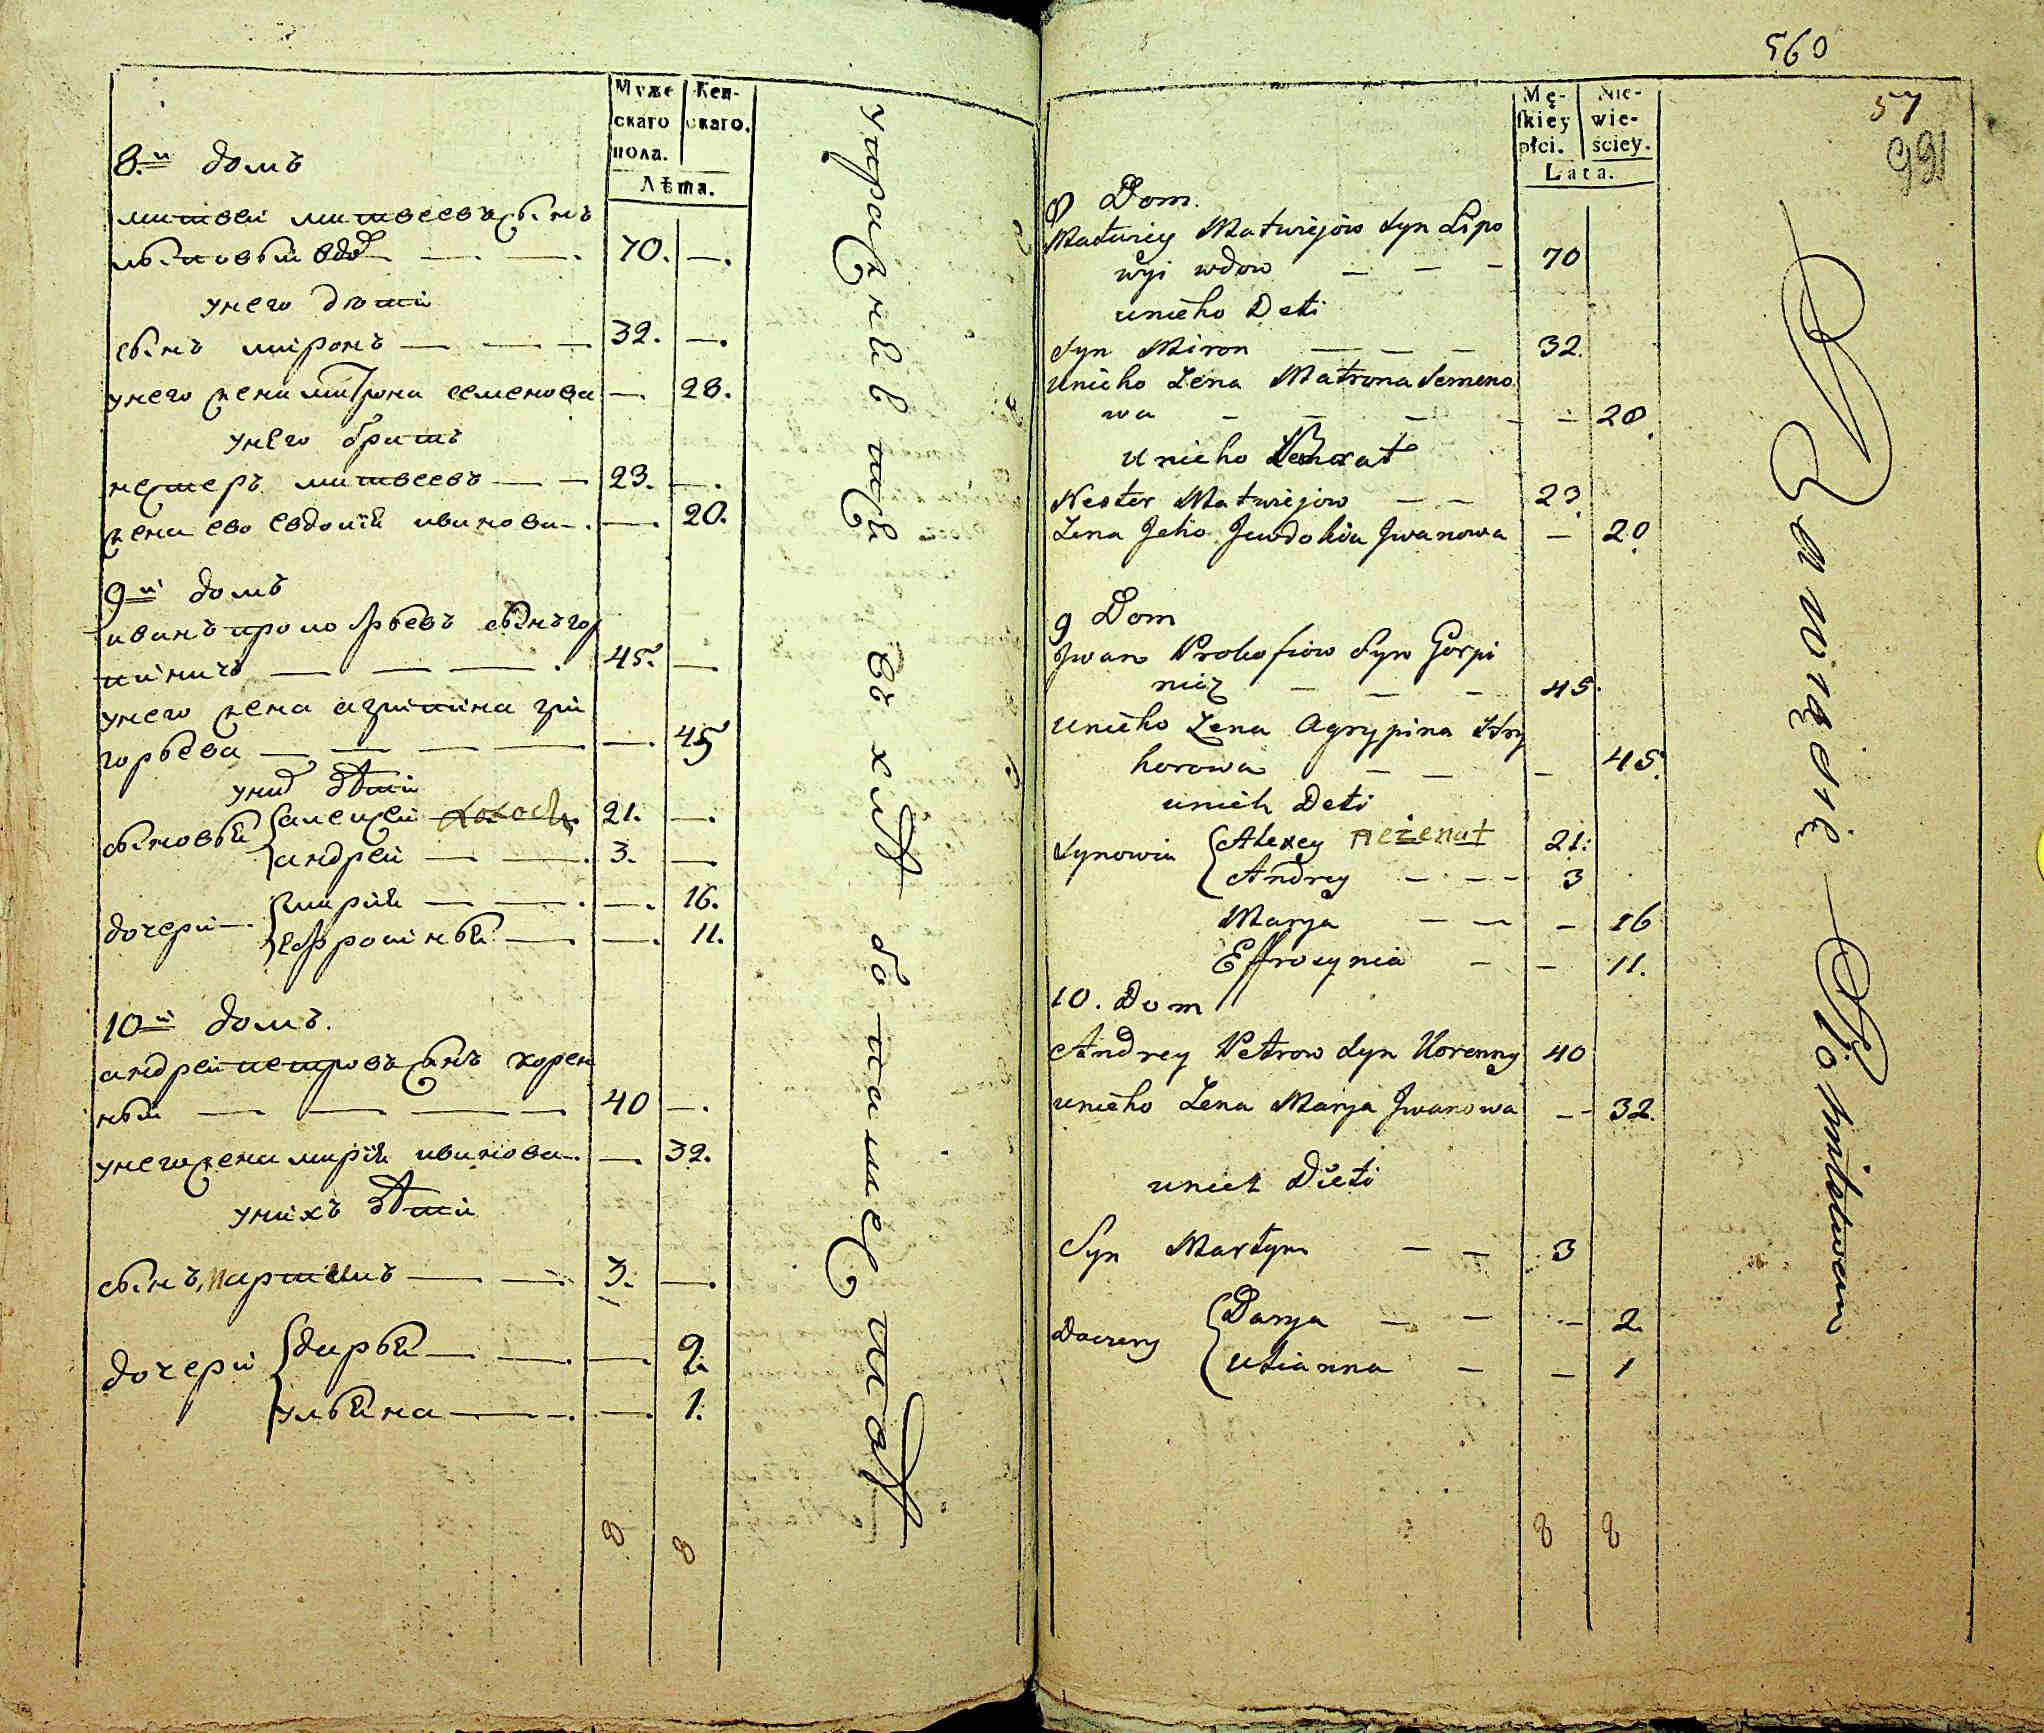 Муже
скаго
пола.
Жен-
скаго.
Лѣта.
8й домъ
матвей матвеевъ сынъ
лыповый вдов — — 70. —.
у него дети
сынъ миронъ — — — 32. —.
у него жена матрона семенова — 28.
у него братъ
нестеръ матвеевъ — — 23. —.
жена его евдокия иванова — . — 20.
9й домъ
иванъ прокофьевъ сынъ гор
пиничъ — — — . 45. —
у него жена агрипина гри
горьева — — — — — 45
у них дети
сыновья алексей холост. 21. —.
андрей — — . 3. —
дочери — мария — — . —. 16.
ефросинья — —. 11.
10й домъ.
андрей петровъ сынъ корен
ный — — — — 40 —.
у него жена мария иванова —. — 32.
у нихъ дети
сынъ, мартинъ — — 3. —.
дочери дарья — — . —. 2.
ульяна — — . —. 1.
8 8
въ
560
57
991
Mę-
skiey
płci.
Nie-
wie-
sciey.
Lata.
8 Dom.
Matwiey Matwiejow Syn Lipo
wyi wdow — — — 70
unieho Deti
Syn Miron — — — 32.
Unieho Żena Matrona Semeno
wa — — — — — 28.
Unieho Brat
Nester Matwiejow — — 23.
Żena Jeho Jewdokia Jwanowa — 20.
9 Dom
Jwan Prokofiow Syn Gorpi
nicz — — — 45.
Unieho Żena Agrypina Hry
horowa — — — 45.
unich Deti
Synowia Alexey nieżenat 21.
Andrey — — — 3
Marya — — — 16
Effrosynia — — 11.
10. Dom
Andrey Petrow Syn Korenny 40
unieho Żena Marya Jwanowa — — 32.
unich Dieti
Syn Martyn — — 3
Daczery Darya — — — 2.
Ulianna — — 1
8 8